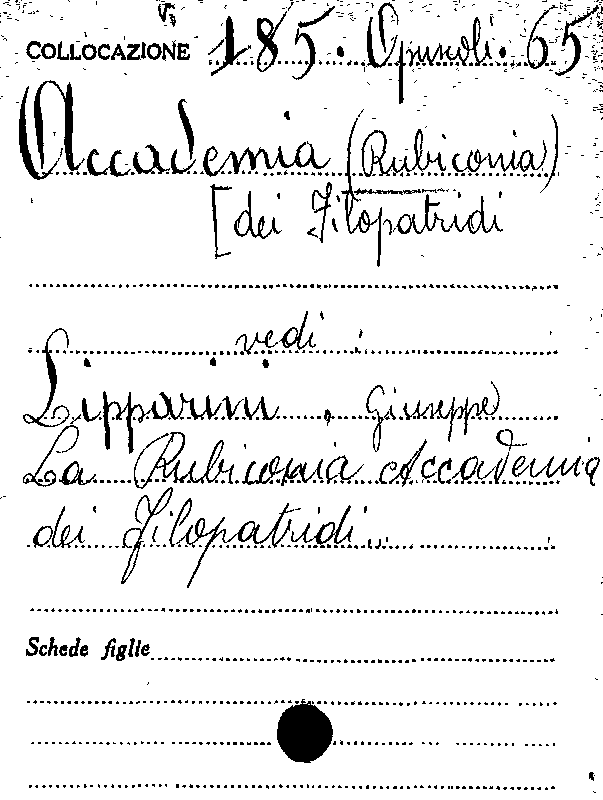 COLLOCAZIONE 185. Opuscoli. 65
Accademia (Rubiconia)
[dei Filopatridi
vedi:
Lipparini, Giuseppe
La Rubiconia Accademia
dei Filopatridi...
Schede figlie